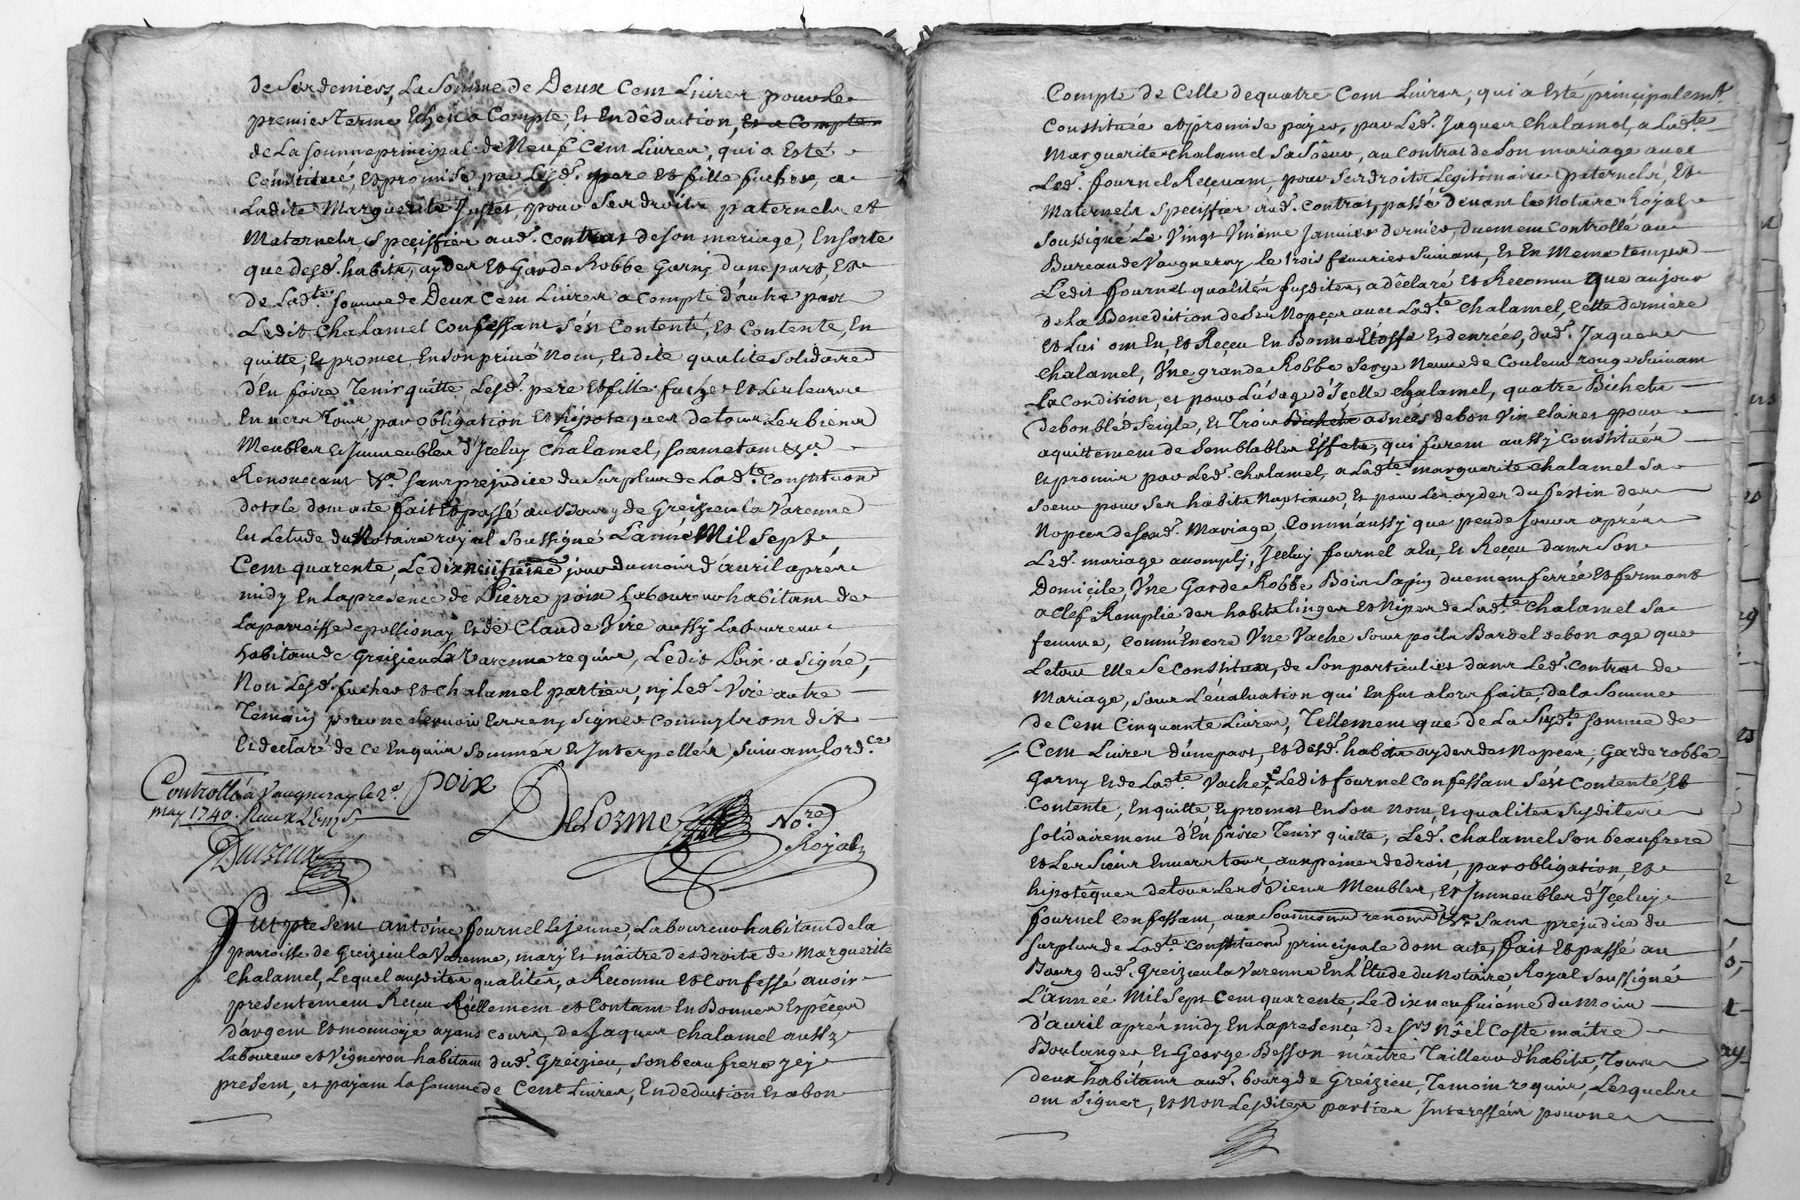 de Ses deniers, La Somme de Deux Cent Livres pour Le
premier Terme Echeu a Compte, Et En dêduction, Et a Compte
de La somme principale de Neuf Cent Livres, qui a Esté
Constitué, Et promise par Lesd. pere Et fille fuchez, a
Ladite Marguerite Justet, pour Ses droits paternels et
Maternels, Speciffiez aud. contrat de son mariage, En sorte
que desd. habits, ayder Et Garde Robbe Garny d'une part, Et
de Lad.te Somme de Deux Cent Livres a Compte d'autre part
Ledit Chalamel Confessant s'est Contenté, Et Contente, En
quitte, Et promet, En son privé Nom, Et dite qualité Solidaire
d'En faire Tenir quitte, Lesd. pere Et fille fuchez Et Les leurs
Envers Tous, par obligation Et hipoteques de tous Les biens
Meubles Et Immeubles d'Iceluy Chalamel, soumetant &.a
Renonceant &.a sans prejudice du Surplus de Lad.te Constitution
dotale dont acte fait Et passé au Bourg de Greizieu la Varenne
En Letude du Notaire royal Soussigné L'année Mil Sept
Cent quarente, Le dixneufvieme jour du mois d'avril aprés
midy En La presence de Pierre poix Laboureur habitant de
La parroisse Et de Claude Vire aussy Laboureur
habitant de Greizieu La Varenne requis, Ledit Poix a Signé,
Non Lesd. fuchez Et Chalamel parties, ny Led. Vire autre
Témoin pour ne Sçavoir Escrire ny Signer comm'ils ont dit
Et declaré de ce Enquis Sommés Et Interpellés Suivant Lord.ce
Controllé a Vaugneray le 2.e
may 1740. Reçu
poix
DeLorme No.re
Royal
Fut present antoine fournel Le jeune, Laboureur habitant de la
parroisse de Greizieu la Varenne, mary Et maître des droits de Marguerite
Chalamel, Lequel ausdites qualités, a Reconnu Et Confessé avoir
presentement Reçeu Réellement et Contant En Bonnes Espêces
d'argent Et monnoye ayant cours, de Jaques Chalamel aussy
Laboureur et Vigneron habitant dud. Greizieu, son beaufrere icy
present, et payant La Somme de Cent Livres, En deduction Et a bon
Compte de Celle de quatre Cent Livres, qui a Esté principalem.t
Constituée et promise payer, par Led. Jaques Chalamel, a Lad.te
Marguerite Chalamel Sa Sœur, au Contrat de Son mariage avec
Led. fournel Recevant, pour Ses droits Legitimaires paternels, Et
Maternels Speciffiez aud. Contrat, passé devant Le Notaire Royal
Soussigné Le Vingt Unième Janvier dernier, duement Controllé au
Bureau de Vaugneray le trois fevrier Suivant, Et En Meme temps
Ledit fournel qualités susdites, a déclaré et Reconnu que au jour
de La Benediction de Ses Nopces avec Lad.te Chalamel, Cette derniere
Et Lui ont Eu, Et Reçeu En Bonne Etoffe Et denrées, dud. Jaques
Chalamel, Une grande Robbe Serge Neuve de Couleur rouge Suivant
La Condition, et pour L'usage d'Icelle Chalamel, quatre Bichets
de bon bléd Seigle, Et Trois Bichets asnées de bon Vin Clairet pour
aquittement de Semblables Effets, qui furent aussy Constitués
Et promis par Led. Chalamel, a Lad.te marguerite Chalamel Sa
Soeur pour Ses habits Nuptiaux, Et pour Les ayder du festin des
Nopces de Sond. Mariage, Comm'aussy que peu de Jours aprés
Led. mariage accomply, Iceluy fournel a Eu, Et Reçeu dans Son
Domicile, Une Garde Robbe Bois Sapin duement ferrée Et fermant
a Clef Remplie des habits linges Et Nipes de Lad.te Chalamel Sa
femme, Comm'Encore Une Vache Sous poil Bardel de bon age que
Letout Elle Se Constitua, de Son particulier dans Led. Contrat de
Mariage, Sous L'évaluation qui En fut alors faite, de la Somme
de Cent Cinquante Livres, Tellement que de La Susd.te Somme de
Cent Livres d'une part, Et desd. habits ayder des Nopces, Garderobbe
Garny Et de Lad.te Vache, Ledit fournel Confessant s'est Contenté, Et
Contente, En quitte, Et promet En Son Nom, Et qualités Susdites
Solidairement d'En faire Tenir quitte, Led. Chalamel Son beaufrere
Et Les Siens Envers tous, aux peines de droit, par obligation, Et
hipotêques de tous Les Biens Meubles, Et Immeubles d'Iceluy
fournel Confessant, aux Soumissions renonces &.a Sans prejudice du
Surplus de Lad.te Constitution principale dont acte, fait Et passé au
Bourg dud. Greizieu la Varenne En L'Etude du Notaire Royal Soussigné
L'année Mil Sept Cent quarente, Le dixneufvième du mois
d'avril aprés midy En La presence de S.rs Nôel Coste maître
Boulanger Et George Besson maître Tailleur d'habits, Tous
deux habitants aud. bourg de Greizieu, Temoins requis, Lesquels
ont Signez, Et Non Lesdites parties Interessées pour ne